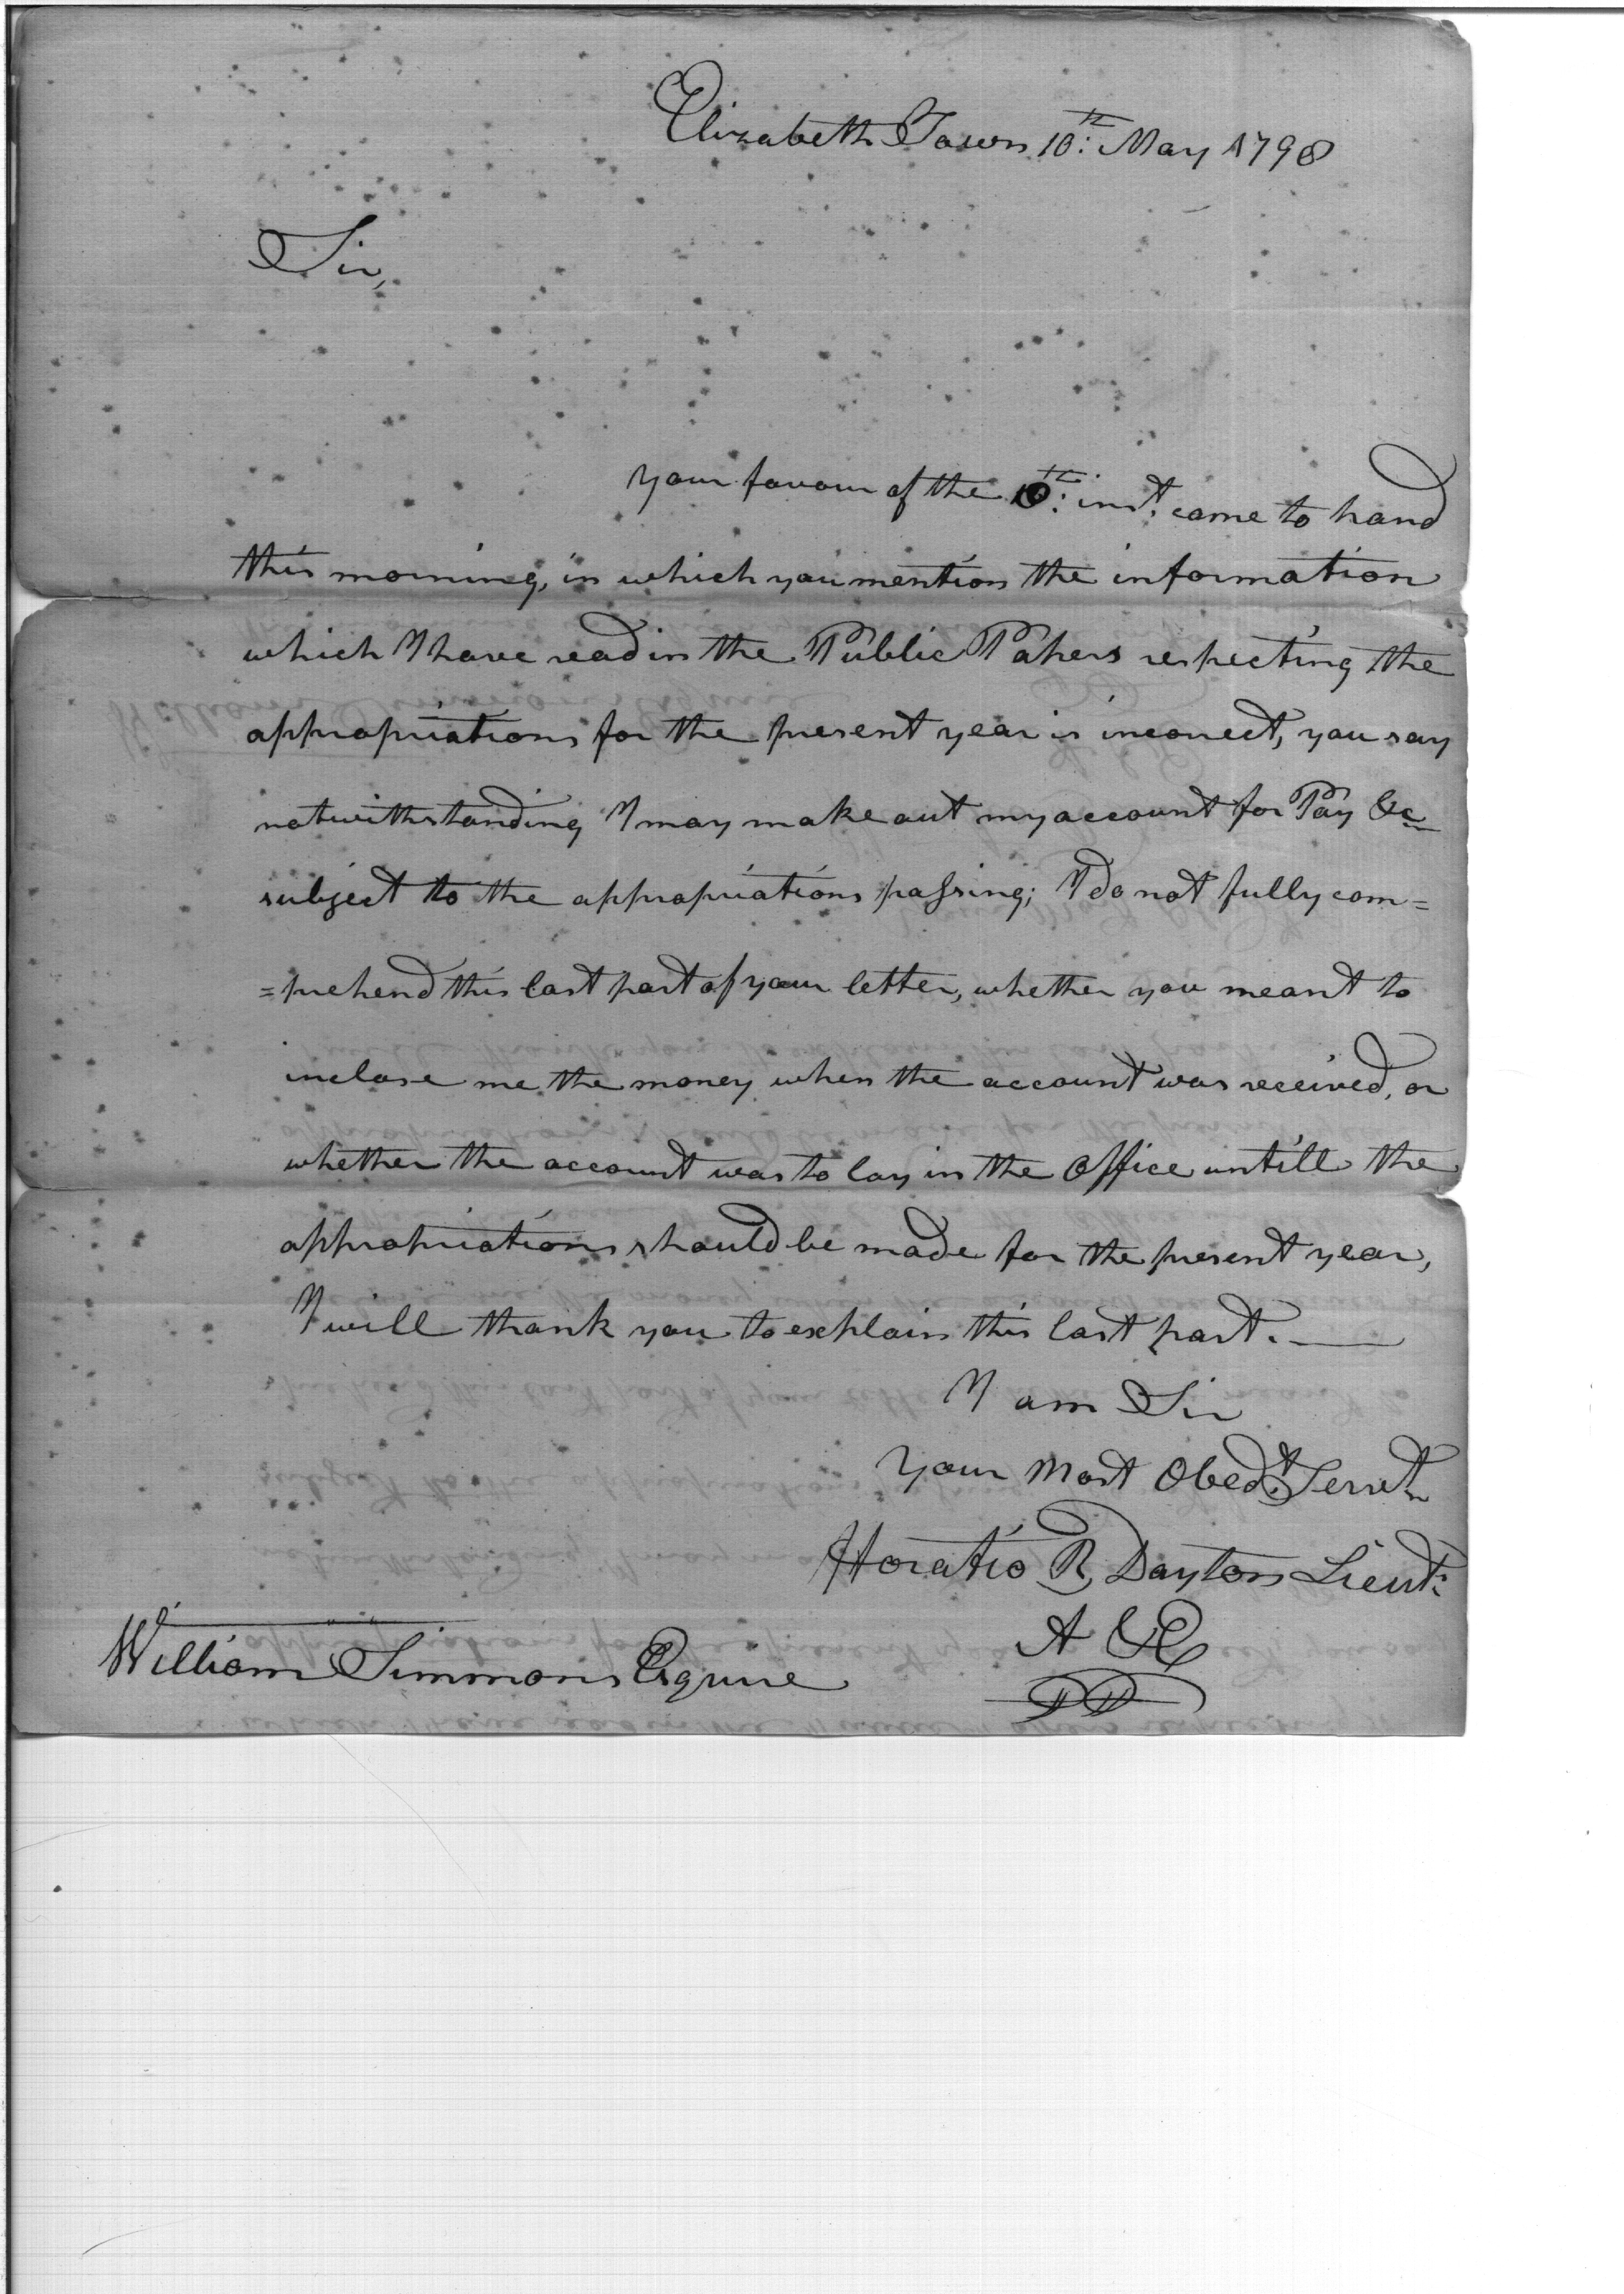 Elizabeth Town 10th: May 1798
Sir,
your favour of the inst: came to hand
this morning, in which you mention the information
which I have read in the Public Papers respecting the
appropriations for the present year is incorrect, you say
notwithstanding I may make out my account for Pay &c
subject to the appropriations passing; I do not fully com=
=prehend this last part of your letter, whether you meant to
inclose me the money when the account was received, or
whether the account was to lay in the Office untill the
appropriations should be made for the present year,
I will thank you to explain this last part. —
I am Sir
Your Most Obedt. Servt
Horatio R Dayton Lieut:
A &
William Simmons Esquire